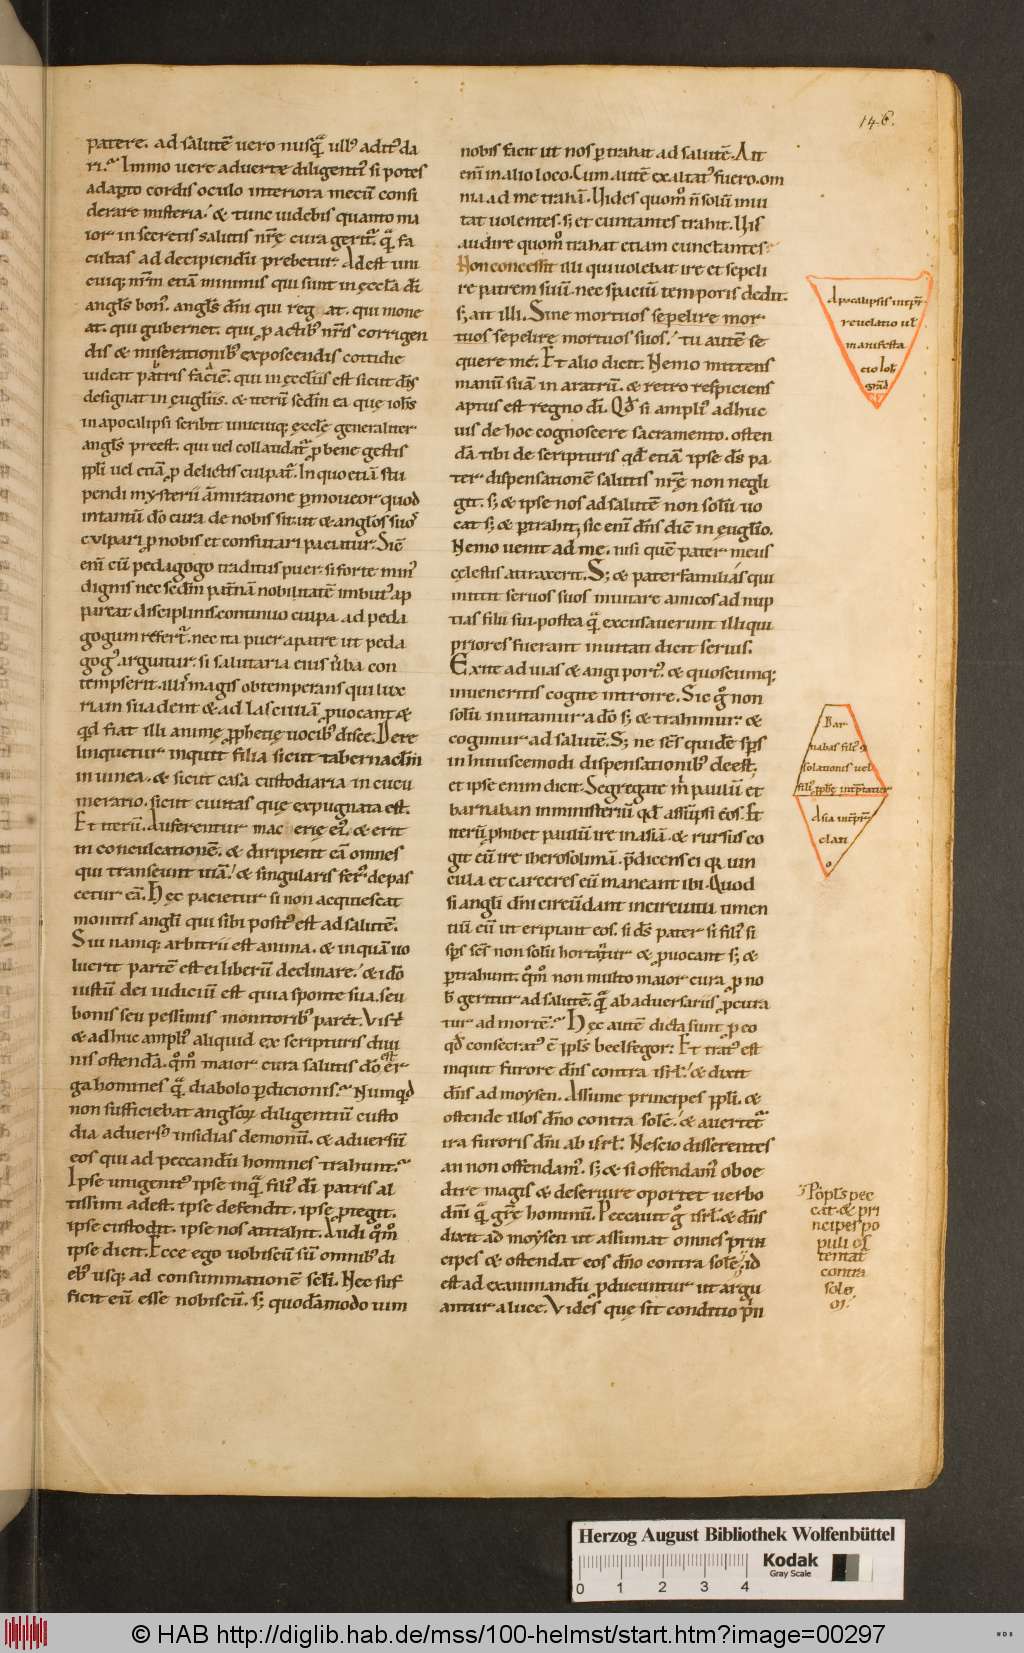 146.
patere. ad salutē uero nusq̄ ull' adit' da
ri? Immo uere aduerte diligenti' si potes
adapto cordis oculo interiora mecū consi
derare misteria! & tunc uidebis quanto ma
ior in secretis salutis nrę cura gerit̄. q̄ fa
cultas ad decipiendū prebetur. Adest uni
cuiq; nr̄m etiā minimis qui sunt in ęccl̄a dī
angl̄s bon'. angl̄s dn̄i qui reg at. qui mone
at. qui gubernet. qui p actib' nr̄is corrigen
dis & miserationib' exposcendis cottidie
uideat patris faciē. qui in ęccl̄iis est sicut dn̄s
designat in ęuglīis. & iterū scdm ea quę ioh̄s
in apocalipsi scribit unicuiq; ęccl̄ę generaliter
angl̄s preest. qui uel collaudat̄ p bene gestis
ppl̄i uel etiā p delictis culpat̄. In quo etiā stu
pendi mysterii āmiratione pmoueor quod
intantū dō cura de nobis sit. ut & angl̄os suos
culpari p nobis et confutari paciatur. Sic
em̄ cū pedagogo traditus puer. si forte min'
dignis nec scdm pat̄nā nobilitatē imbut' ap
pareat disciplinis. continuo culpa ad peda
gogum refert̄. nec ita puer a patre ut peda
gog' arguitur. si salutaria eius ūba con
tempserit. illi' magis obtemperans qui luxu
riam suadent & ad lasciuiā puocant &
qd̄ fiat illi animę pphetię uocib' disce. Dere
linquetur inquit filia sicut tabernaclm̄
in uinea. & sicut casa custodiaria in cucu
merario. sicut ciuitas quę expugnata est.
Et iterū. Auferentur mac erię ei'. & erit
in conculcationē. & diripient eā omnes
qui transeunt uiā! & singularis fer' depas
cetur eā. Hęc pacietur si non acquiescat
monitis angl̄i qui sibi posit' est ad salutē.
Sui namq; arbitrii est anima. & in quā uo
luerit partē est ei liberū declinare! & idō
iustū dei iudiciū est quia sponte sua. seu
bonis seu pessimis monitorib' paret. Vis t̄
& adhuc ampli' aliquid ex scripturis diui
nis ostendā. qm̄o maior cura salutis dō est er
ga homines q̄ diabolo pdicionis? Numqd̄
non sufficiebat angl̄oꝝ diligentiū custo
dia aduers' insidias demonū. & aduersū
eos qui ad peccandū homines trahunt?
Ipse unigenit' ipse inq̄ fili' dī patris al
tissimi adest. ipse defendit. ipse ptegit.
ipse custodit. ipse nos attrahit. Audi qm̄o
ipse dicit. Ecce ego uobiscū sū omnib' di
eb' usq; ad consummationē sclī. Nec suf
ficit eū esse nobiscū. s; quodāmodo uim
nobis facit ut nos ptrahat ad salutē. Ait
em̄ in alio loco. Cum autē exaltat' fuero. om
nia ad me trahā. Vides quom̄o n̄ solū inui
tat uolentes. s; et cunctantes trahit. Vis
audire quom̄o trahat etiam cunctantes?
Non concessit illi qui uolebat ire et sepeli
re patrem suū. nec spaciū temporis dedit.
s; ait illi. Sine mortuos sepelire mor
tuos sepelire mortuos suos! tu autē se
quere me. Et alio dicit. Nemo mittens
manū suā in aratrū. & retro respiciens
aptus est regno dī. Qd̄ si ampli' adhuc
uis de hoc cognoscere sacramento. osten
dā tibi de scripturis qd̄ etiā ipse ds̄ pa
ter dispensationē salutis nrę non negli
git. s; & ipse nos ad salutē non solū uo
cat s; & ptrahit; sic eni dn̄s dic̄ in ęuglīo.
Nemo uenit ad me. nisi quē pater meus
cęlestis attraxerit. S; & pater familias qui
mittit seruos suos inuitare amicos ad nup
tias filii sui. postea q̄ excusauerunt illi qui
priores fuerant inuitati dicit seruis.
Exite ad uias & angiport'. & quoscumq;
inueneritis cogite introire. Sic g̊ non
solū inuitamur a dō s; & trahimur. &
cogimur ad salutē. S; ne scs̄ quidē sps̄
in huiuscemodi dispensationib' deest.
et ipse enim dicit. Segregate m̄ paulū et
barnaban in ministeriū qd̄ assūpsi eos. Et
iterū phibet paulū ire in asiā. & rursus co
git eū ire iherosolimā. pdicens ei qr̄ uin
cula et carceres eū maneant ibi. Quod
si angl̄i dn̄i circūdant in circuitu timen
tiū eū ut eripiant eos. si ds̄ pater si fili' si
sps̄ scs̄ non solū hortatur & puocant s; &
ptrahunt. qm̄o non multo maior cura p no
b̄ geritur ad salutē. q̄ ab aduersariis pcura
tur ad mortē? Hęc autē dicta sunt p eo
qd̄ consecrat' ē ppl̄s beelfegor. Et irat' est
inquit furore dn̄s contra isrl̄! & dixit
dn̄s ad moysen. Assume principes ppl̄i. &
ostende illos dn̄o contra sole! & auertet̄
ira furoris dn̄i ab isrl̄. Nescio disserentes
an non offendam'. s; & si offendam' oboe
dire magis & deseruire oportet uerbo
dn̄i q̄ gr̄ę hominū. Peccauit g̊ isrl̄. & dn̄s
dixit ad moysen ut assumat omnes prin
cipes & ostendat eos dn̄o contra sole. id
est ad examinandū pducuntur ut argu
antur a luce. Vides quę sit conditio prin
Apocalipsis intp̄r
reuelatio ul
manifesta
cio Ioh̄
grad
Bar
nabas fili' 9
solationis uel
fili' pphę intp̄tatur
Asia intp̄r
elati
o
Popl̄s pec
cat. & pri
ncipes po
puli os
tentat
contra
sole
oi.
Herzog August Bibliothek Wolfenbüttel
Kodak
Gray Scale
0 1 2 3 4
© HAB http://diglib.hab.de/mss/100-helmst/start.htm?image=00297